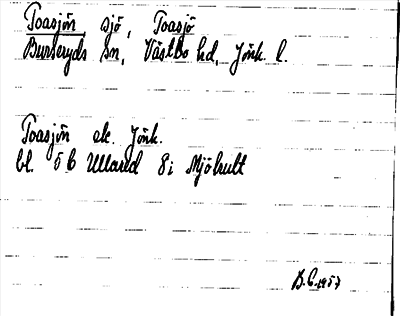 Toasjön, sjö, Toasjö
Burseryds sn, Västbo hd, Jönk. l.
Toasjön ek. Jönk.
bl. 5 C Ullared 8 i Mjöhult
B.C. 1957